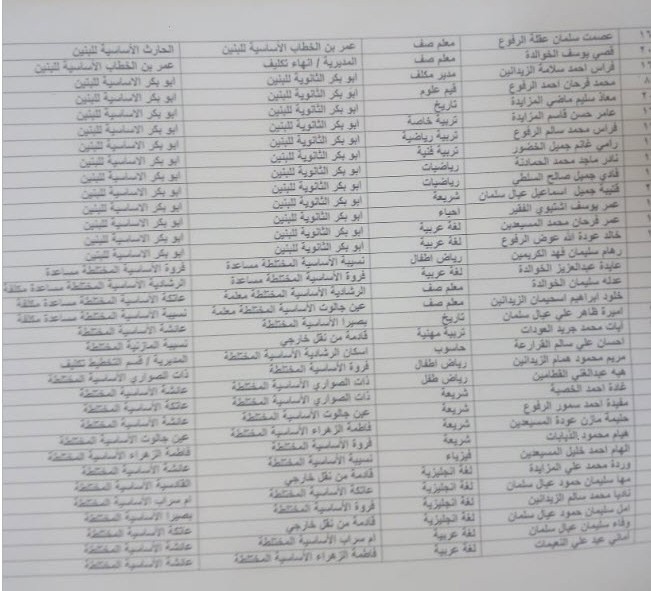 عصمت سلمان عقلة الرفوع معلم صف عمر بن الخطاب الأساسية للبنين الحارث الأساسية للبنين
قصي يوسف الخوالدة معلم صف المديرية / انهاء تكليف عمر بن الخطاب الأساسية للبنين
فراس احمد سلامة الزيدانين مدير مكلف ابو بكر الثانوية للبنين ابو بكر الاساسية للبنين
محمد فرحان احمد الرفوع قيم علوم ابو بكر الثانوية للبنين ابو بكر الاساسية للبنين
معاذ سليم ماضي المزايدة تاريخ ابو بكر الثانوية للبنين ابو بكر الاساسية للبنين
عامر حسن قاسم المزايدة تربية خاصة ابو بكر الثانوية للبنين ابو بكر الاساسية للبنين
فراس محمد سالم الرفوع تربية رياضية ابو بكر الثانوية للبنين ابو بكر الاساسية للبنين
رامي غانم جميل الخضور تربية فنية ابو بكر الثانوية للبنين ابو بكر الاساسية للبنين
نادر ماجد محمد الحمادنة رياضيات ابو بكر الثانوية للبنين ابو بكر الاساسية للبنين
فادي جميل صالح السلطي رياضيات ابو بكر الثانوية للبنين ابو بكر الاساسية للبنين
قتيبة جميل اسماعيل عيال سلمان شريعة ابو بكر الثانوية للبنين ابو بكر الاساسية للبنين
عمر يوسف اشتيوي الفقير احياء ابو بكر الثانوية للبنين ابو بكر الاساسية للبنين
عمر فرحان محمد المسيعدين لغة عربية ابو بكر الثانوية للبنين ابو بكر الاساسية للبنين
خالد عودة الله عوض الرفوع لغة عربية ابو بكر الثانوية للبنين ابو بكر الاساسية للبنين
رهام سليمان فهد الكريمين رياض اطفال نسيبة الأساسية المختلطة مساعدة فروة الأساسية المختلطة مساعدة
عايدة عبدالعزيز الخوالدة لغة عربية فروة الأساسية المختلطة مساعدة الرشادية الأساسية المختلطة مساعدة مكلفة
عدله سليمان الخوالدة معلم صف الرشادية الأساسية المختلطة معلمة عاتكة الأساسية المختلطة مساعدة مكلفة
خلود ابراهيم اسحيمان الزيدانين معلم صف عين جالوت الأساسية المختلطة معلمة نسيبة الأساسية المختلطة مساعدة مكلفة
اميرة ظاهر علي عيال سلمان تاريخ بصيرا الأساسية المختلطة عائشة الأساسية المختلطة
آيات محمد جريد العودات تربية مهنية قادمة من نقل خارجي نسيبة المازنية المختلطة
احسان علي سالم القرارعة حاسوب اسكان الرشادية الأساسية المختلطة المديرية / قسم التخطيط تكليف
مريم محمود همام الزيدانين رياض اطفال فروة الأساسية المختلطة ذات الصواري الأساسية المختلطة
هبه عبدالغني القطامين رياض طفل ذات الصواري الأساسية المختلطة عائشة الأساسية المختلطة
غادة احمد الخصبة شريعة ذات الصواري الأساسية المختلطة عاتكة الأساسية المختلطة
مفيدة احمد سمور الرفوع شريعة عين جالوت الأساسية المختلطة عائشة الأساسية المختلطة
حليمة مازن عودة المسيعدين شريعة فاطمة الزهراء الأساسية المختلطة عين جالوت الأساسية المختلطة
هيام محمود الذيابات شريعة فروة الأساسية المختلطة فاطمة الزهراء الأساسية المختلطة
الهام احمد خليل المسيعدين فيزياء نسيبة الأساسية المختلطة عائشة الأساسية المختلطة
وردة محمد علي المزايدة لغة انجليزية قادمة من نقل خارجي القادسية الأساسية المختلطة
مها سليمان حمود عيال سلمان لغة انجليزية عاتكة الأساسية المختلطة ام سراب الأساسية المختلطة
ناديا محمد سالم الزيدانين لغة انجليزية فروة الأساسية المختلطة بصيرا الأساسية المختلطة
امل سليمان حمود عيال سلمان لغة انجليزية قادمة من نقل خارجي عاتكة الأساسية المختلطة
وفاء سليمان عيال سلمان لغة عربية ام سراب الأساسية المختلطة عائشة الأساسية المختلطة
أماني عبد علي النعيمات لغة عربية فاطمة الزهراء الأساسية المختلطة عائشة الأساسية المختلطة